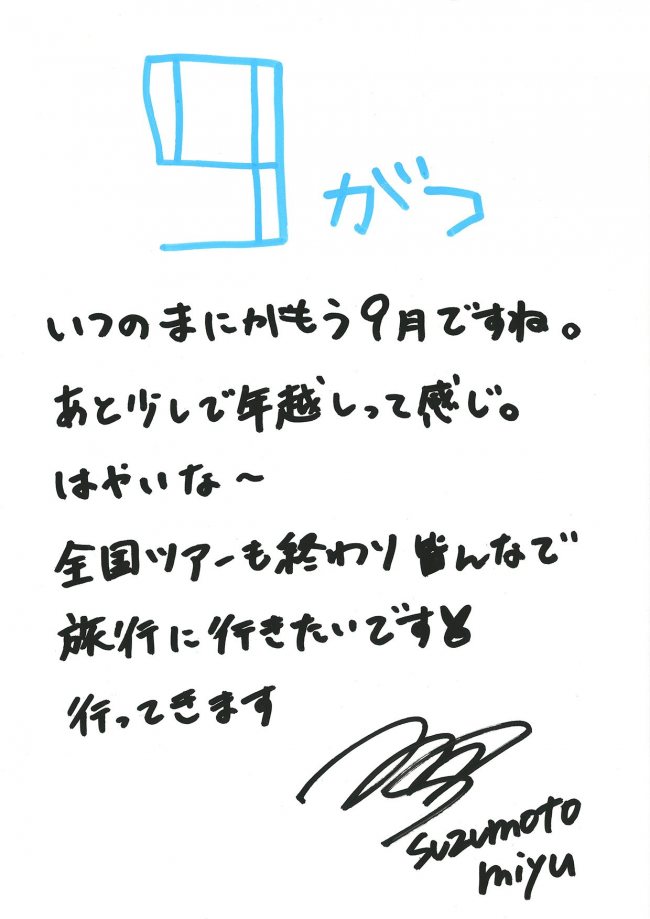 9がつ
いつのまにかもう9月ですね。
あと少しで年越しって感じ。
はやいな〜
全国ツアーも終わり皆んなで
旅行に行きたいです
行ってきます
suzumoto
miyu